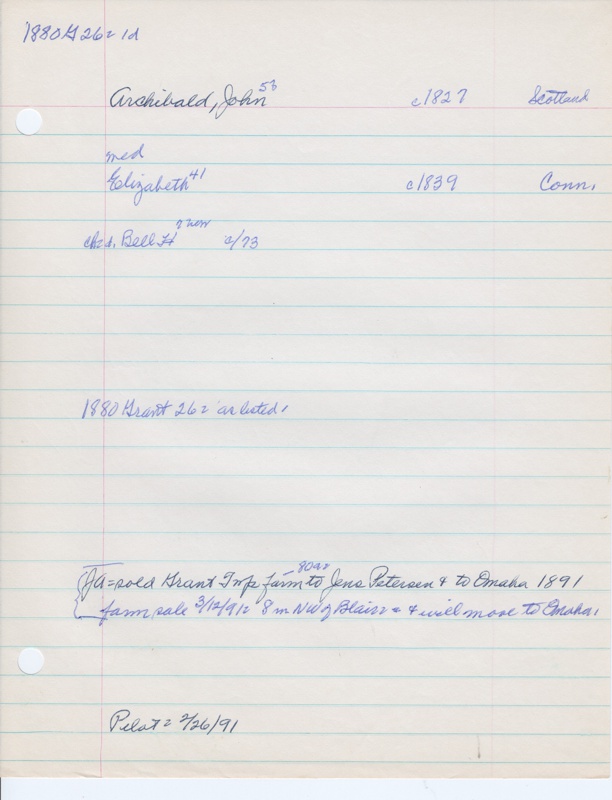 1880 G 26= 1d
Archibald, John 53 c1827 Scotland
med
Elizabeth 41 c1839 Conn.
ch= 1. Bell H c/73
1880 Grant 26= as listed.
80a=
JA=sold Grant Twp farm to Jens Petersen & to Omaha 1891
farm sale 3/12/91= 8 m NW of Blair= & will move to Omaha.
Pilot= 2/26/91